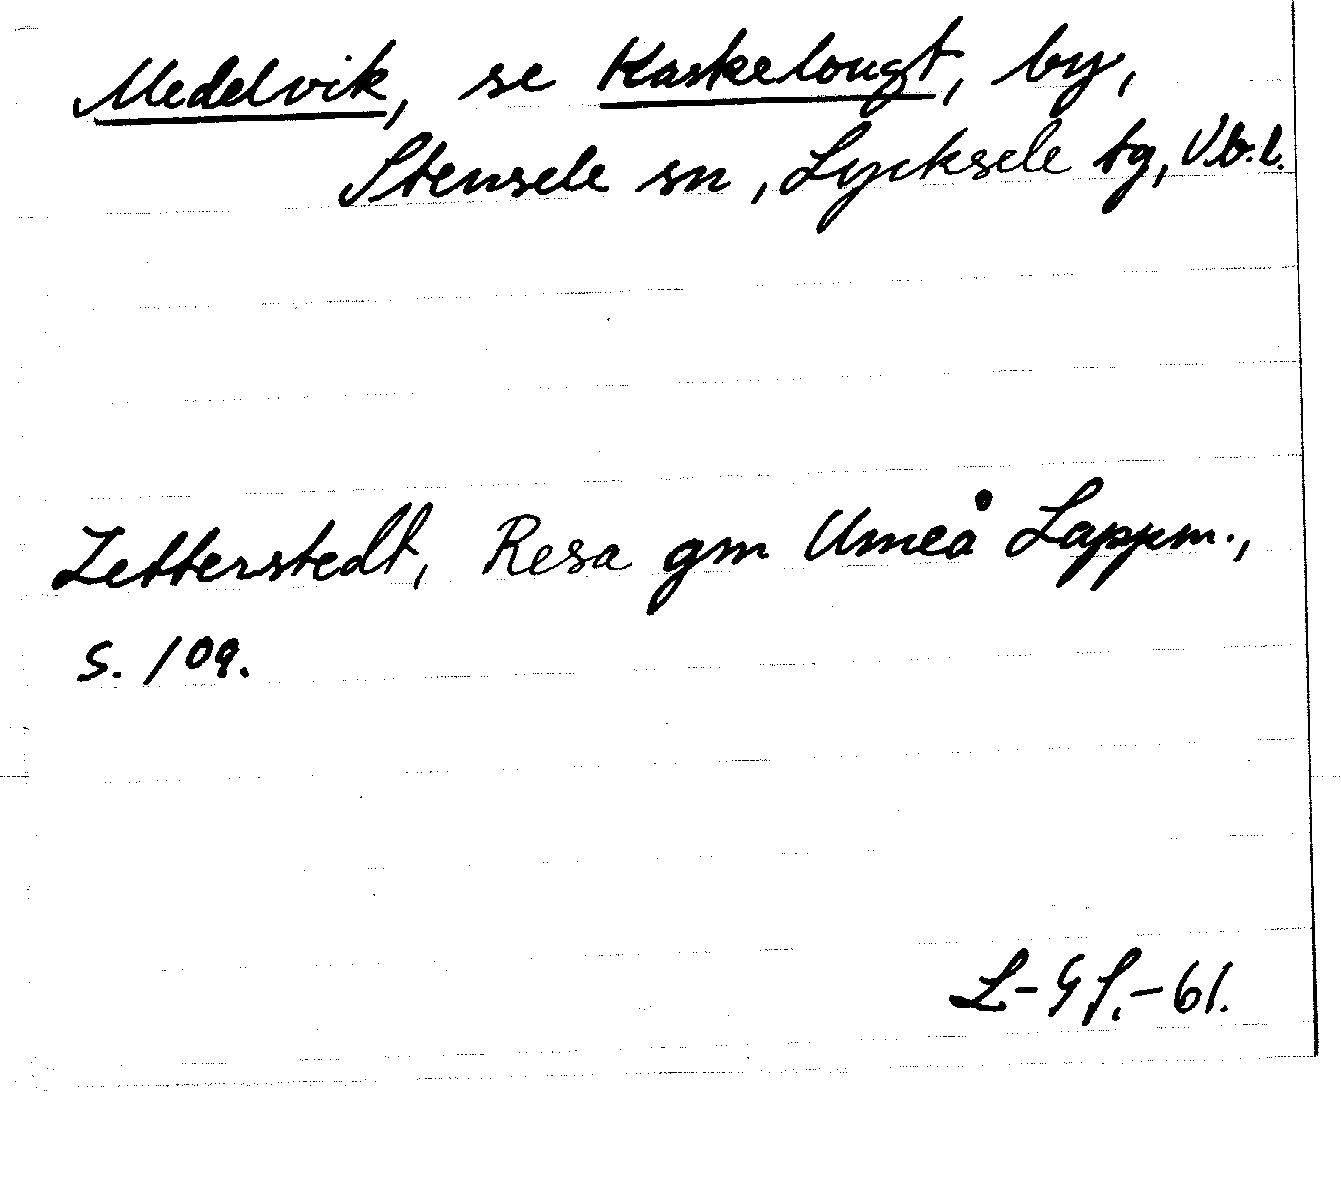 Medelvik, se Kaskelougt, by,
Stensele sn, Lycksele tg, V.b.l.
Zetterstedt, Resa gm Umeå Lappm.,
s. 109.
L-Gf.-61.